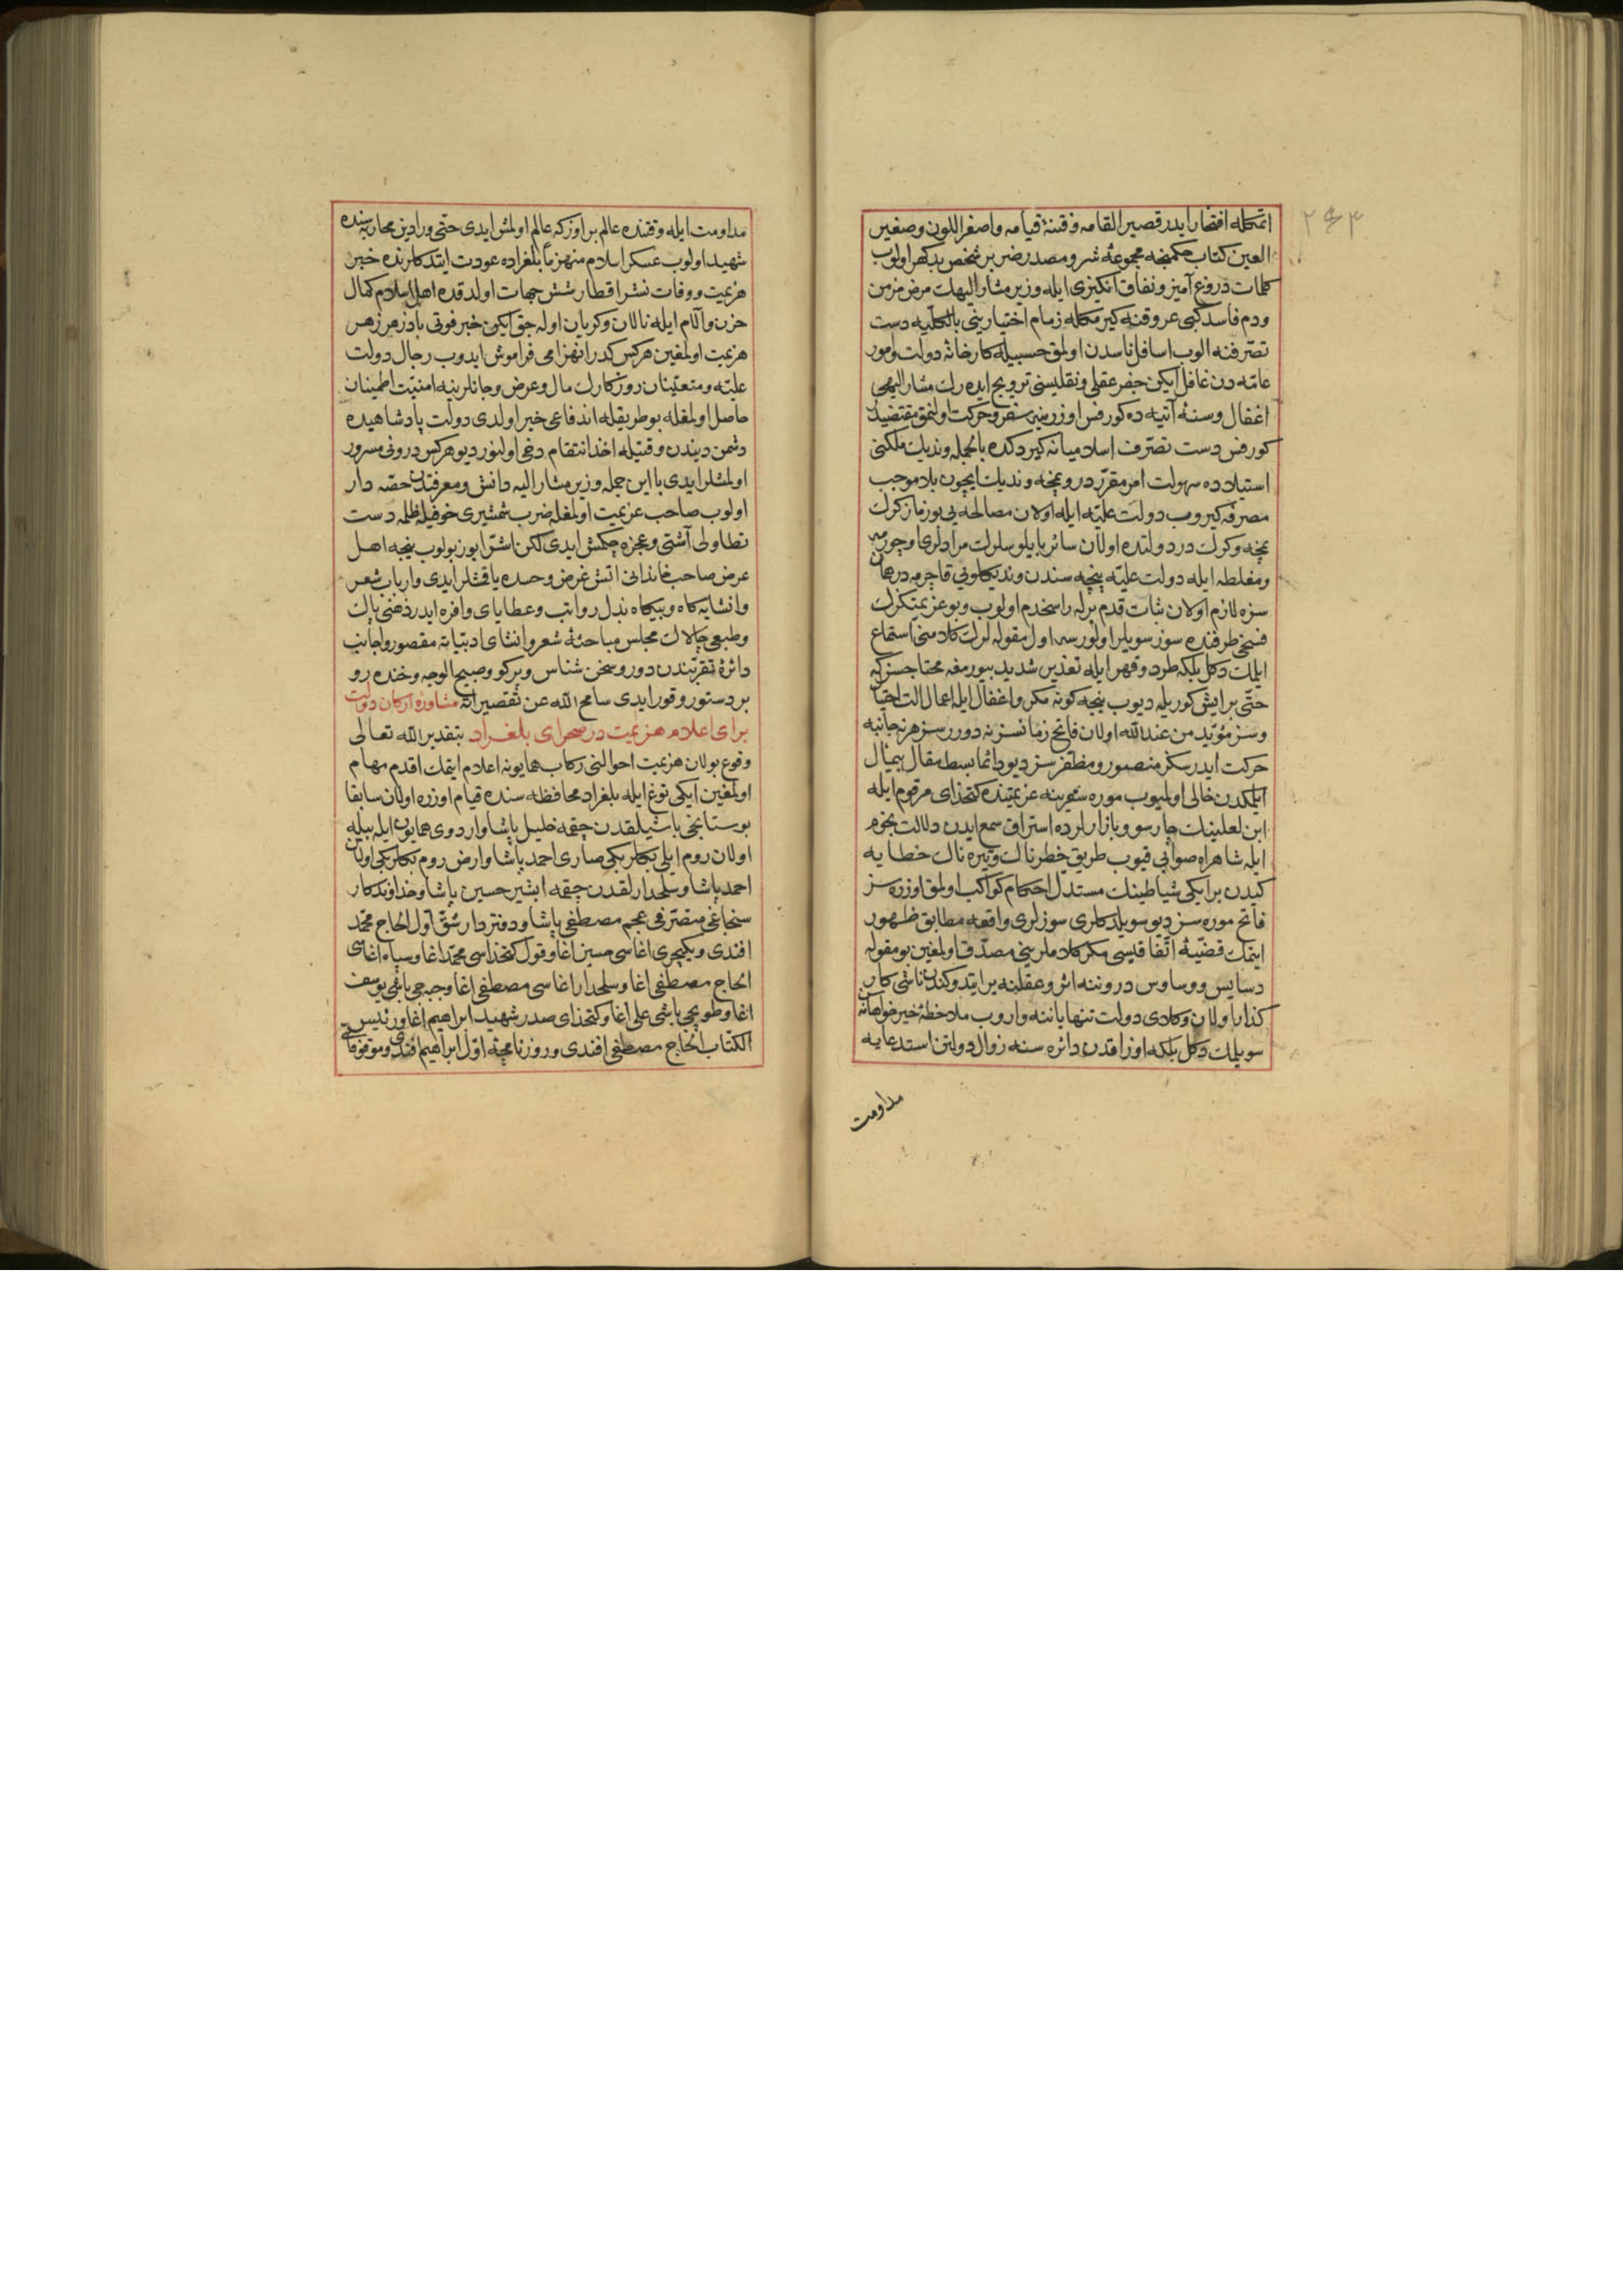 ۲۶۴
اتمكله افتخار ايدر قصير القامه و فتنۀ قيامه و اصفر اللون و صغير
العين كتاب حكمنجه مجموعۀ شر و مصدر ضرر بر شخص بدكهر اولوب
كلمات دروغ آميز و نفاق انكيزى ايله وزير مشار اليهك مرض مزمن
و دم فاسد كبى عروقنه كيرمكله زمام اختيارينى بالكليه دست
تصرفنه الوب اسافل ناسدن اولمق حسبيله كارخانۀ دولت و امور
عامه دن غافل ايكن جفر عقلى و نقليسنى ترويج ايده رك مشار اليهى
اغفال و سنۀ آتيه ده كورفس اوزرينه سفر و حركت اولنمق مقتضيدر
كورفس دست تصرف اسلاميانه كيردكده بالجمله ونديك ملكنى
استيلاده سهولت امر مقرردر و بنجه ونديك ايچون بلا موجب
مصرفه كيروب دولت عليه ايله اولان مصالحه يى بوزماز كرك
بنجه و كرك در دولتده اولان سائر بايلوسلرك مرادلرى اوچورمه
و مغلطه ايله دولت عليه پنجه سندن ونديكلويى قاچرمه در همان
سزه لازم اولان ثبات قدم برله راسخدم اولوب و بو عزيمتكزك
فسخى طرفنده سوز سويلر اولورسه اول مقوله لرك كلامنى استماع
ايلمك دكل بلكه طرد و قهر ايله تعذير شديد بيورمغه محتاجسزكه
حتى بر ايش كوريله ديوب نيجه كونه مكر و اغفال ايله اعمال الت احتيال
و سز مؤيد من عند الله اولان فاتح زمانسز نه دوررسز هر نه جانبه
حركت ايدرسكز منصور و مظفرسز ديو دائما بسط مقال بيمثال
ايلمكدن خالى اولميوب موره سفرينه عزيمتنده كتخداى مرقوم ايله
ابن لعلينك چارسو و بازارلرده استراق سمع ايدن دلالت نجوم
ايله شاهراه صوابى قيوب طريق خطرناك و تيره ناك خطايه
كيدن بر ايكى شياطينك مستدل احكام كواكب اولمق اوزره سز
فاتح موره سز ديو سويلدكلرى سوزلرى واقعه مطابق ظهور
ايتمك قضيۀ اتفاقيسى مكر كلاملرينى مصدق اولمغين بو مقوله
دسايس و وساوس دروننه اثر و عقلنه ير ايتدوكندن ناشى كار
كذار اولان وكلاى دولت تنها ياننه واروب ملاحظۀ خيرخواهانه
سويلمك دكل بلكه اوزاقدن دائره سنه زوال دولتن استدعايه
مداومت
مداومت ايله وقتنده عالم براوزكه عالم اولمش ايدى حتى ورادين محاربه سنده
شهيد اولوب عسكر اسلام منهزما بلغراده عودت ايتدكلرنده خبر
هزيمت و وفات نشر اقطار شش جهات اولدقده اهل اسلام كمال
حزن و آلام ايله نالان و كريان اوله جق ايكن خبر فوتى پادزهر زهر
هزيمت اولمغين هركس كدر انهزامى فراموش ايدوب رجال دولت
عليه و متعينان روزكارك مال و عرض و جانلرينه امنيت اطمينان
حاصل اولمغله بو طريقله اندفاعى خير اولدى دولت پادشاهيده
دشمن ديندن وقتيله اخذ انتقام دخى اولنور ديو هركس درونى مسرور
اولمشلر ايدى با اين جمله وزير مشار اليه دانش و معرفتدن حصه دار
اولوب صاحب عزيمت اولمغله ضرب شمشيرى خوفيله ظلمه دست
تطاولى آشتى و عجزه چكمش ايدى لكن اشرار يوز بولوب نيجه اهل
عرض صاحب خاندانى اتش غرض و حسده ياقمشلر ايدى و ارباب شعر
و انشايه كاه و بيكاه بذل رواتب و عطاياى وافره ايدر ذهنى پاك
و طبعى چالاك مجلس مباحثۀ شعر و انشاى ادبياته مقصور و اجانب
دائرۀ تقربندن دور و سخن شناس و پركو و صبيح الوجه و خنده رو
بر دستور وقور ايدى سامح الله عن تقصيراته مشاورۀ اركان دولت
براى اعلام هزيمت در صحراى بلغراد بتقدير الله تعالى
وقوع بولان هزيمت احوالنى ركاب همايونه اعلام ايتمك اقدم مهام
اولمغين ايكى توغ ايله بلغراد محافظه سنده قيام اوزره اولان سابقا
بوستانجى باشيلقدن چقمه خليل پاشا و اردوى همايون ايله بيله
اولان روم ايلى بكلربكى صارى احمد پاشا و ارض روم بكلربكى اولان
احمد پاشا و سلحدارلقدن چقمه ابشير حسين پاشا و خداوندكار
سنجاغى متصرفى عجم مصطفى پاشا و دفتردار شق اول الحاج محمد
افندى و يكيچرى اغاسى حسين اغا و قول كتخداسى محمد اغا و سپاه اغاسى
الحاج مصطفى اغا و سلحدار اغاسى مصطفى اغا و جبه جى باشى يوسف
اغا و طوپجى باشى على اغا و كتخداى صدر شهيد ابراهيم اغا و رئيس
الكتاب الحاج مصطفى افندى و روزنامچۀ اول ابراهيم افندى و موقوفاتى